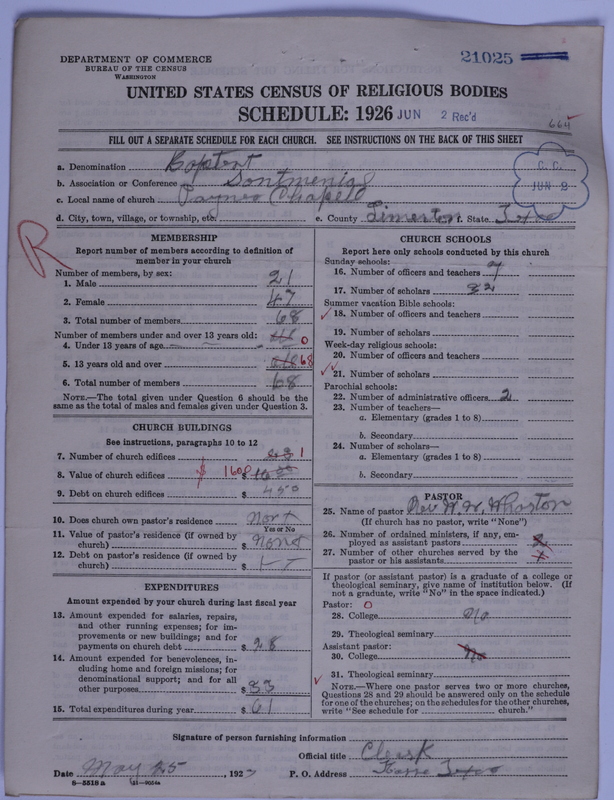 21025
DEPARTMENT OF COMMERCE
BUREAU OF THE CENSUS
WASHINGTON
UNITED STATES CENSUS OF RELIGIOUS BODIES
SCHEDULE: 1926 JUN 2 Rec'd
664
FILL OUT A SEPARATE SCHEDULE FOR EACH CHURCH. SEE INSTRUCTIONS ON THE BACK OF THIS SHEET
C. C.
JUN 2
a. Denomination Baptist
b. Association or Conference
c. Local name of church Chapel
d. City, town, village, or township, etc.
e. County f. State
R
MEMBERSHIP
Report number of members according to definition of member in your church
Number of members, by sex:
1. Male 21
2. Female 47
3. Total number of members 68
Number of members under and over 13 years old:
4. Under 13 years of age 0
5. 13 years old and over 68
6. Total number of members 68
NOTE.—The total given under Question 6 should be the
same as the total of males and females given under Question 3.
CHURCH BUILDINGS
See instructions, paragraphs 10 to 12
7. Number of church edifices 1
8. Value of church edifices $ 1600 $
9. Debt on church edifices $ 450
10. Does church own pastor's residence
Yes or No
11. Value of pastor's residence (if owned by
church) $
12. Debt on pastor's residence (if owned by
church) $
EXPENDITURES
Amount expended by your church during last fiscal year
13. Amount expended for salaries, repairs,
and other running expenses; for im-
provements or new buildings; and for
payments on church debt $ 28
14. Amount expended for benevolences, in-
cluding home and foreign missions; for
denominational support; and for all
other purposes $ 33
15. Total expenditures during year $ 61
CHURCH SCHOOLS
Report here only schools conducted by this church
Sunday schools:
16. Number of officers and teachers 7
17. Number of scholars 32
Summer vacation Bible schools:
18. Number of officers and teachers
19. Number of scholars
Week-day religious schools:
20. Number of officers and teachers
21. Number of scholars
Parochial schools:
22. Number of administrative officers 2
23. Number of teachers—
a. Elementary (grades 1 to 8)
b. Secondary
24. Number of scholars—
a. Elementary (grades 1 to 8)
b. Secondary
PASTOR
25. Name of pastor Rev W. W. Wharton
(If church has no pastor, write "None")
26. Number of ordained ministers, if any, em-
ployed as assistant pastors
27. Number of other churches served by the
pastor or his assistants
If pastor (or assistant pastor) is a graduate of a college or
theological seminary, give name of institution below. (If
not a graduate, write "No" in the space indicated.)
Pastor: 0
28. College No
29. Theological seminary
Assistant pastor:
30. College No
31. Theological seminary
NOTE.—Where one pastor serves two or more churches,
Questions 28 and 29 should be answered only on the schedule
for one of the churches; on the schedules for the other churches,
write "See schedule for church."
Signature of person furnishing information
Official title Clerk
Date May 25 1927 P. O. Address
8—5518 a